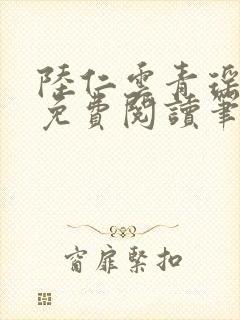 陸仁雲青瑤
免費閱讀筆
窗扉緊扣